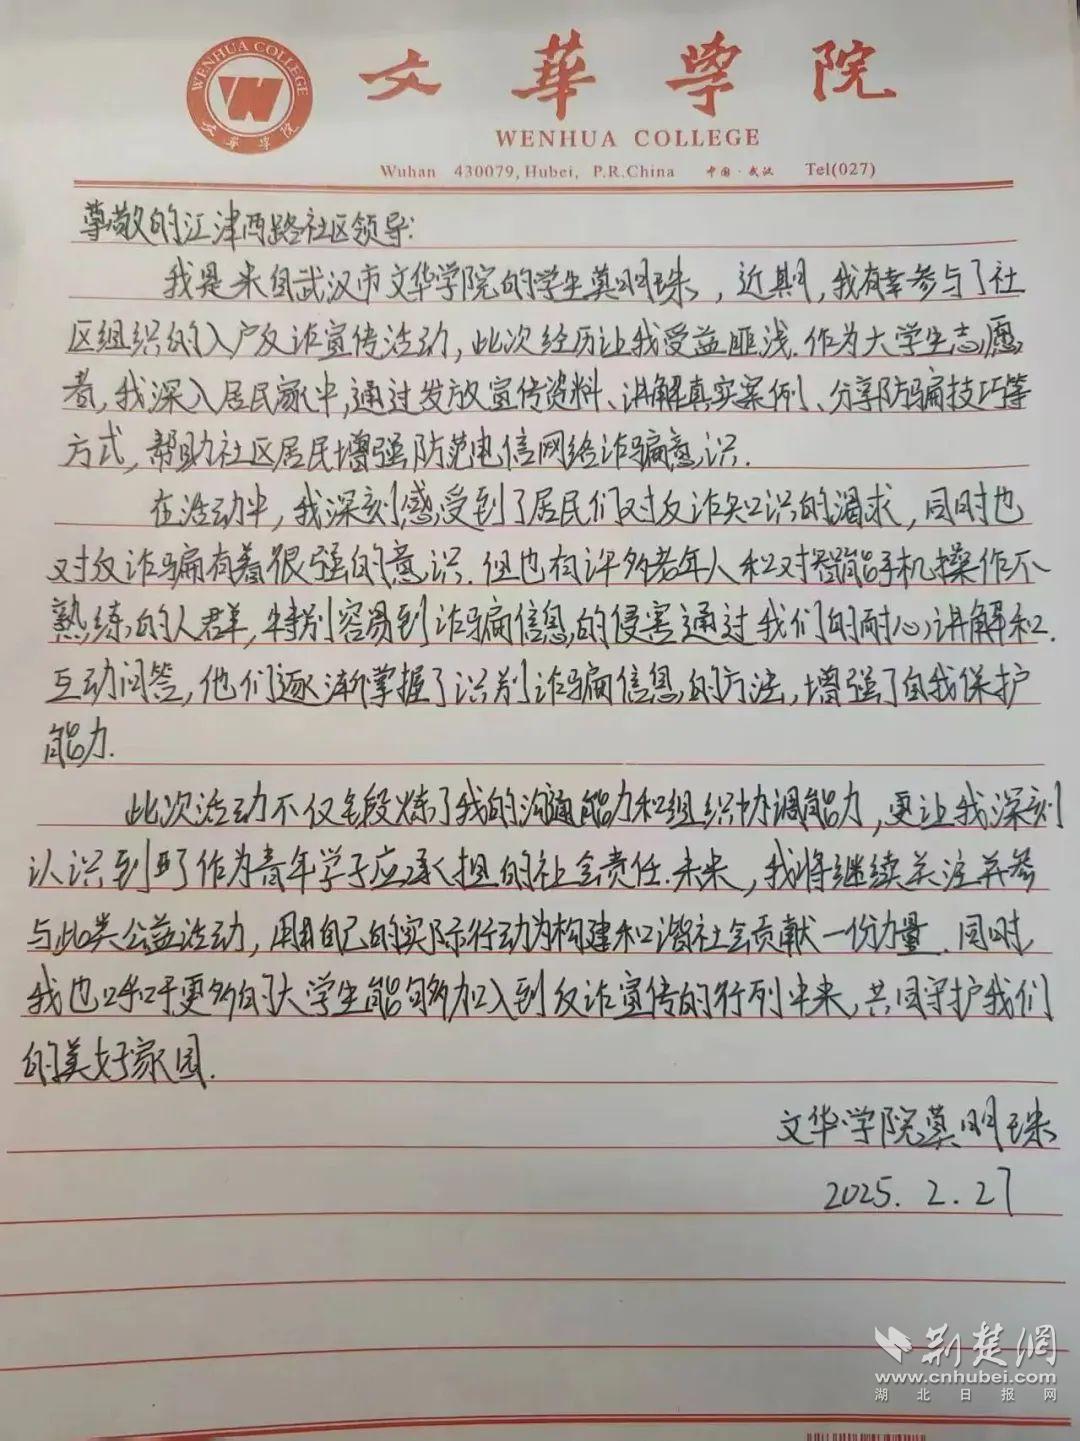 WENHUA COLLEGE
文华学院
文華學院
WENHUA COLLEGE
Wuhan 430079, Hubei, P.R.China 中国·武汉 Tel(027)
尊敬的江津西路社区领导:
我是来自武汉市文华学院的学生莫明珠，近期，我有幸参与了社
区组织的入户反诈宣传活动，此次经历让我受益匪浅.作为大学生志愿
者，我深入居民家中，通过发放宣传资料、讲解真实案例、分享防骗技巧等
方式，帮助社区居民增强防范电信网络诈骗意识.
在活动中，我深刻感受到了居民们对反诈知识的渴求，同时也
对反诈骗有着很强的意识.但也有许多老年人和对智能手机操作不
熟练的人群，特别容易到诈骗信息的侵害通过我们的耐心讲解和.
互动问答，他们逐渐掌握了识别诈骗信息的方法，增强了自我保护
能力.
此次活动不仅锻炼了我的沟通能力和组织协调能力，更让我深刻
认识到了作为青年学子应承担的社会责任.未来，我将继续关注并参
与此类公益活动，用自己的实际行动为构建和谐社会贡献一份力量.同时，
我也呼吁更多的大学生能够加入到反诈宣传的行列中来，共同守护我们
的美好家园.
文华学院莫明珠
2025.2.27
荆楚網
www.cnhubei.com
湖北日报网